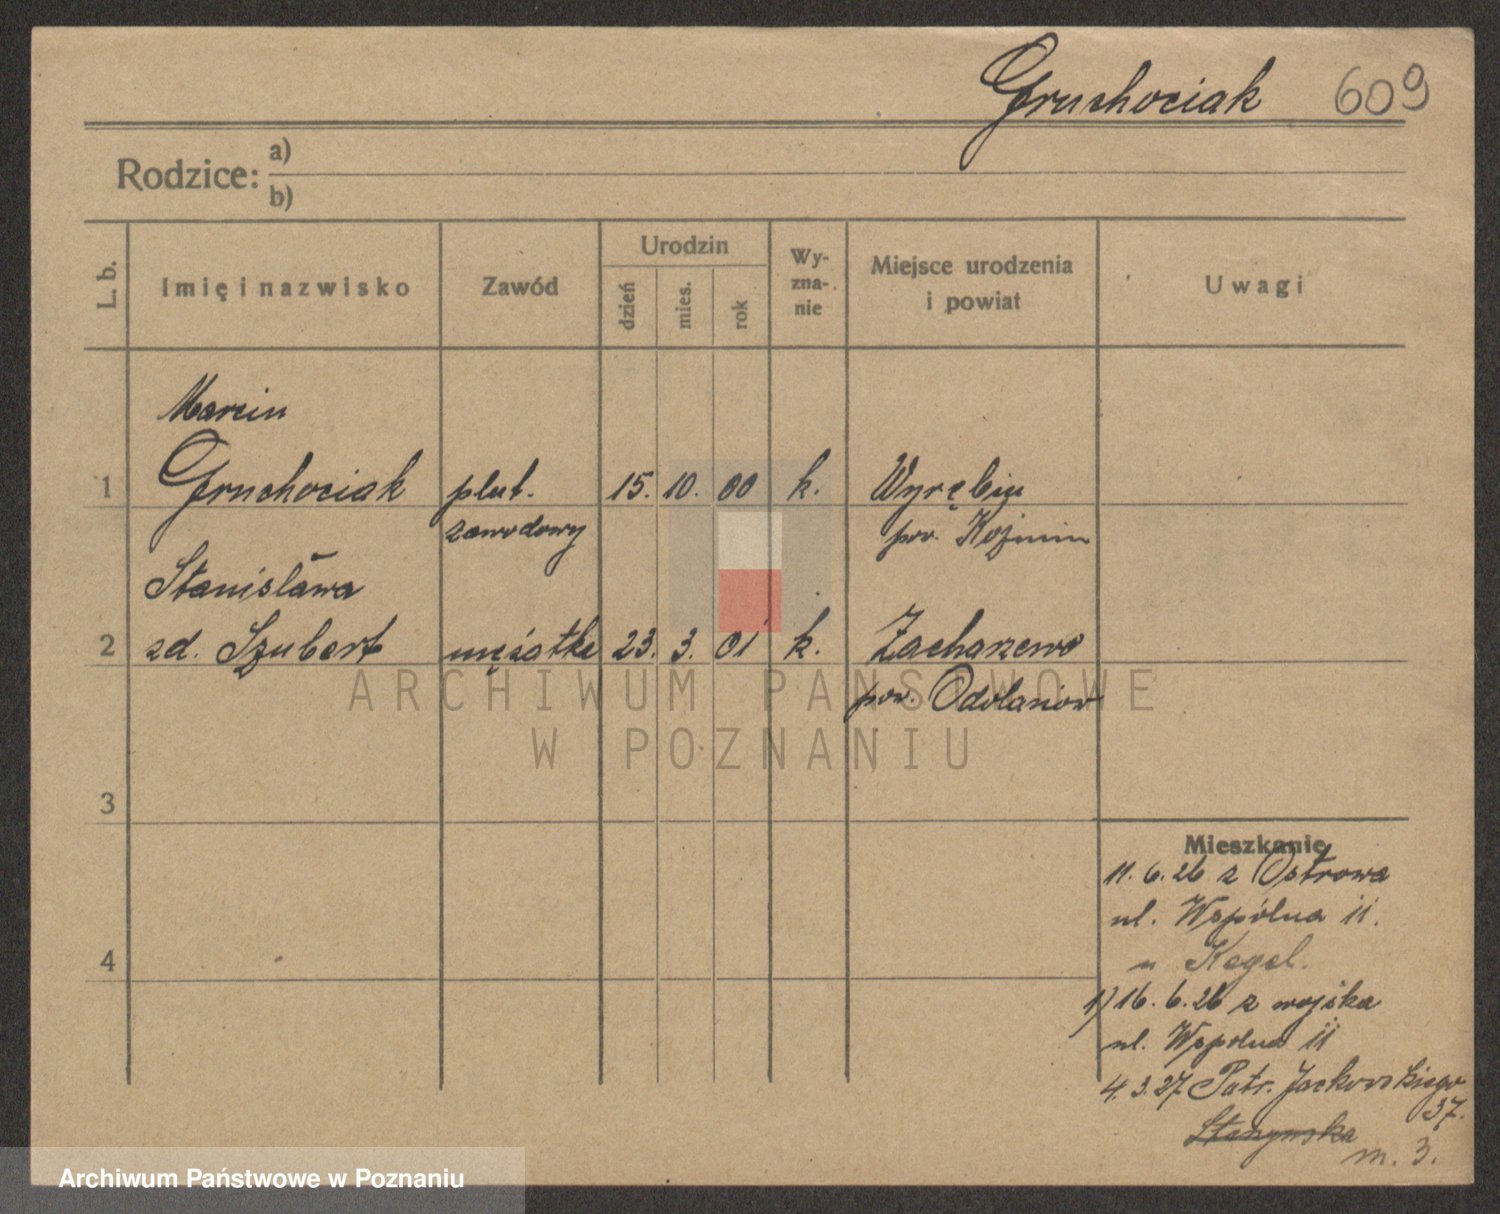 Gruchociak 609
Rodzice: a)
b)
L. b.
Imię i nazwisko
Zawód
Urodzin
dzień
mies.
rok
Wy-
zna-
nie
Miejsce urodzenia
i powiat
Uwagi
Marcin
1 Gruchociak plut. 15. 10. 00 k. Wyrębin
zawodowy pow. Koźmin
Stanisława
2 zd. Szubert mężatka 23. 3. 01 k. Zacharzewo
pow. Odolanów
ARCHIWUM PAŃSTWOWE
W POZNANIU
3
Mieszkanie
11. 6. 26 z Ostrowa
ul. Wspólna 11.
4
u Kegel.
1) 16. 6. 26 z wojska
ul. Wspolna 11
4. 3. 27 Patr. Jackowskiego
37.
m. 3.
Archiwum Państwowe w Poznaniu